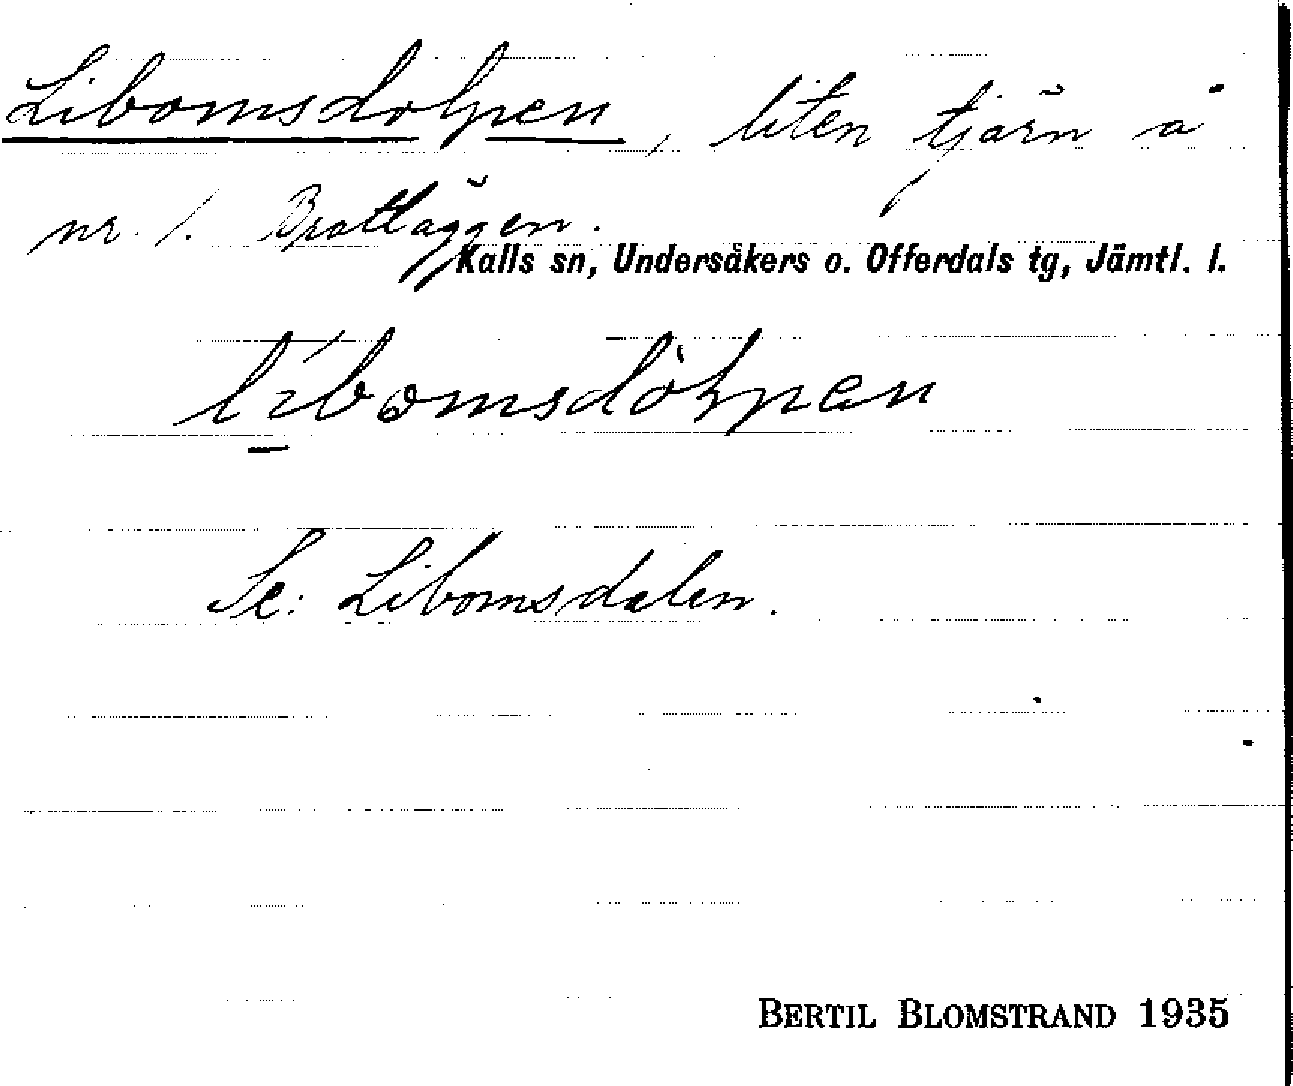 Libomsdolpen, liten tjärn å
nr. 1. Brattäggen.
Kalls sn, Undersåkers o. Offerdals tg, Jämtl. l.
Se: Libomsdalen.
BERTIL BLOMSTRAND 1935